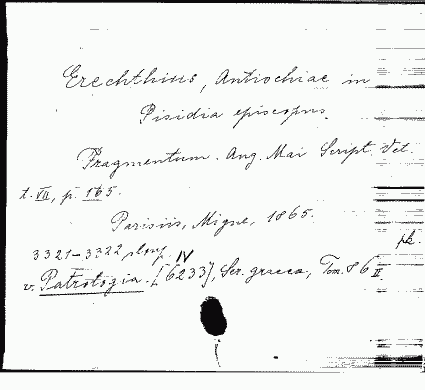 Erechthius, Antiochiae in
Pisidia episcopus.
Fragmentum. Ang. Mai Script. Vet.
t. VII, p. 165.
Parisiis, Migne, 1865.
pk.
3321-3322 IV
v. Patrologia. [6233], Ser. graeca, Tom. 86 II